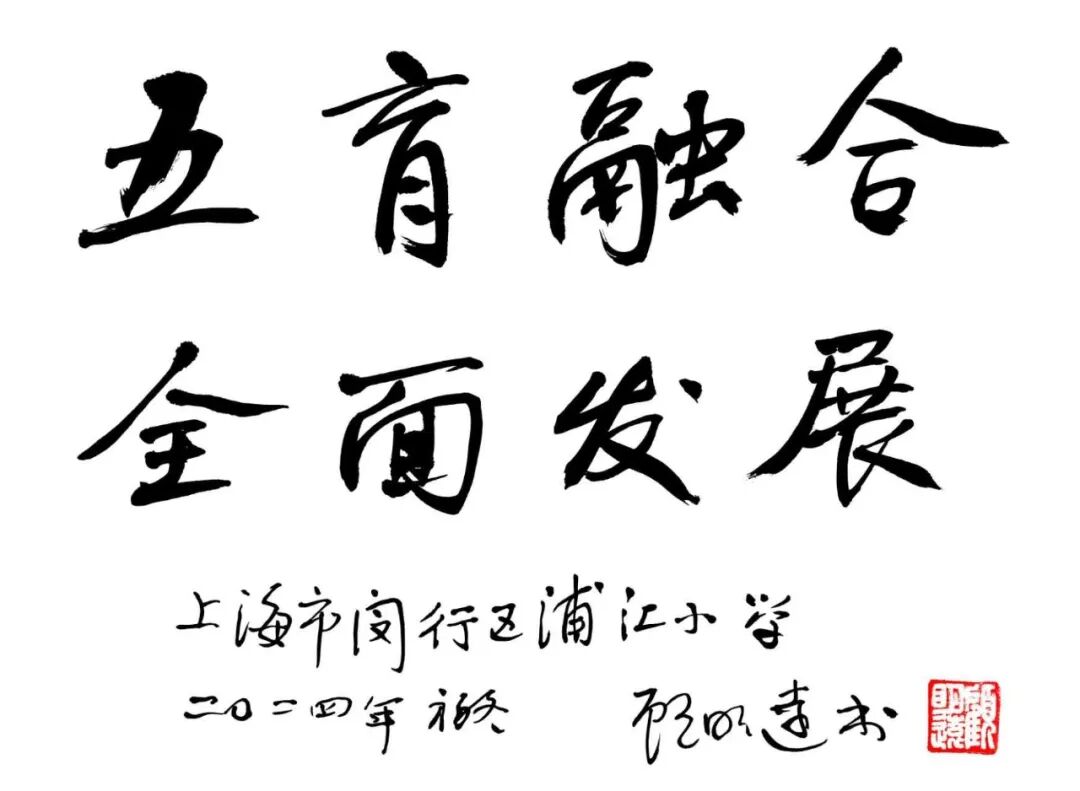 五育融合
全面发展
上海市闵行区浦江小学
二〇二四年初冬 顾明远书
顾明远